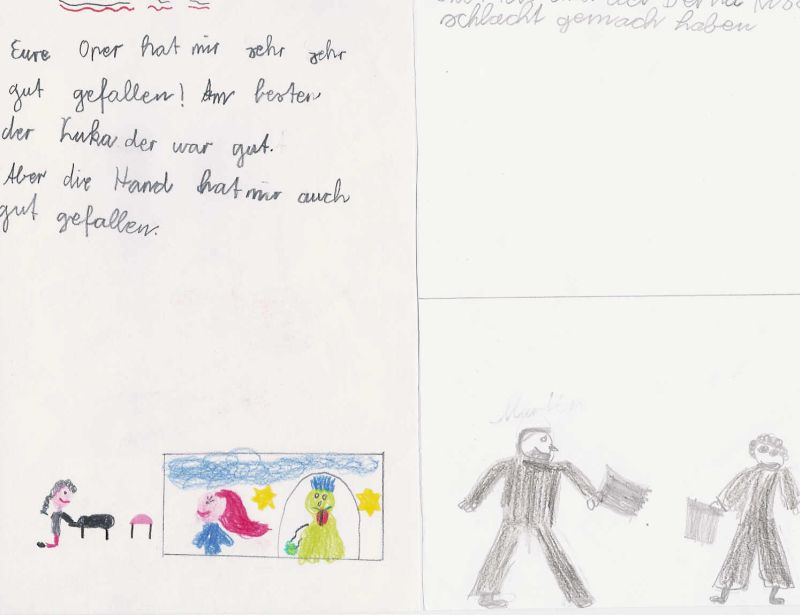 Eure Oper hat mir sehr sehr
gut gefallen! Am besten
der Kuka der war gut.
Aber die Hand hat mir auch
gut gefallen.
schlacht gemach haben